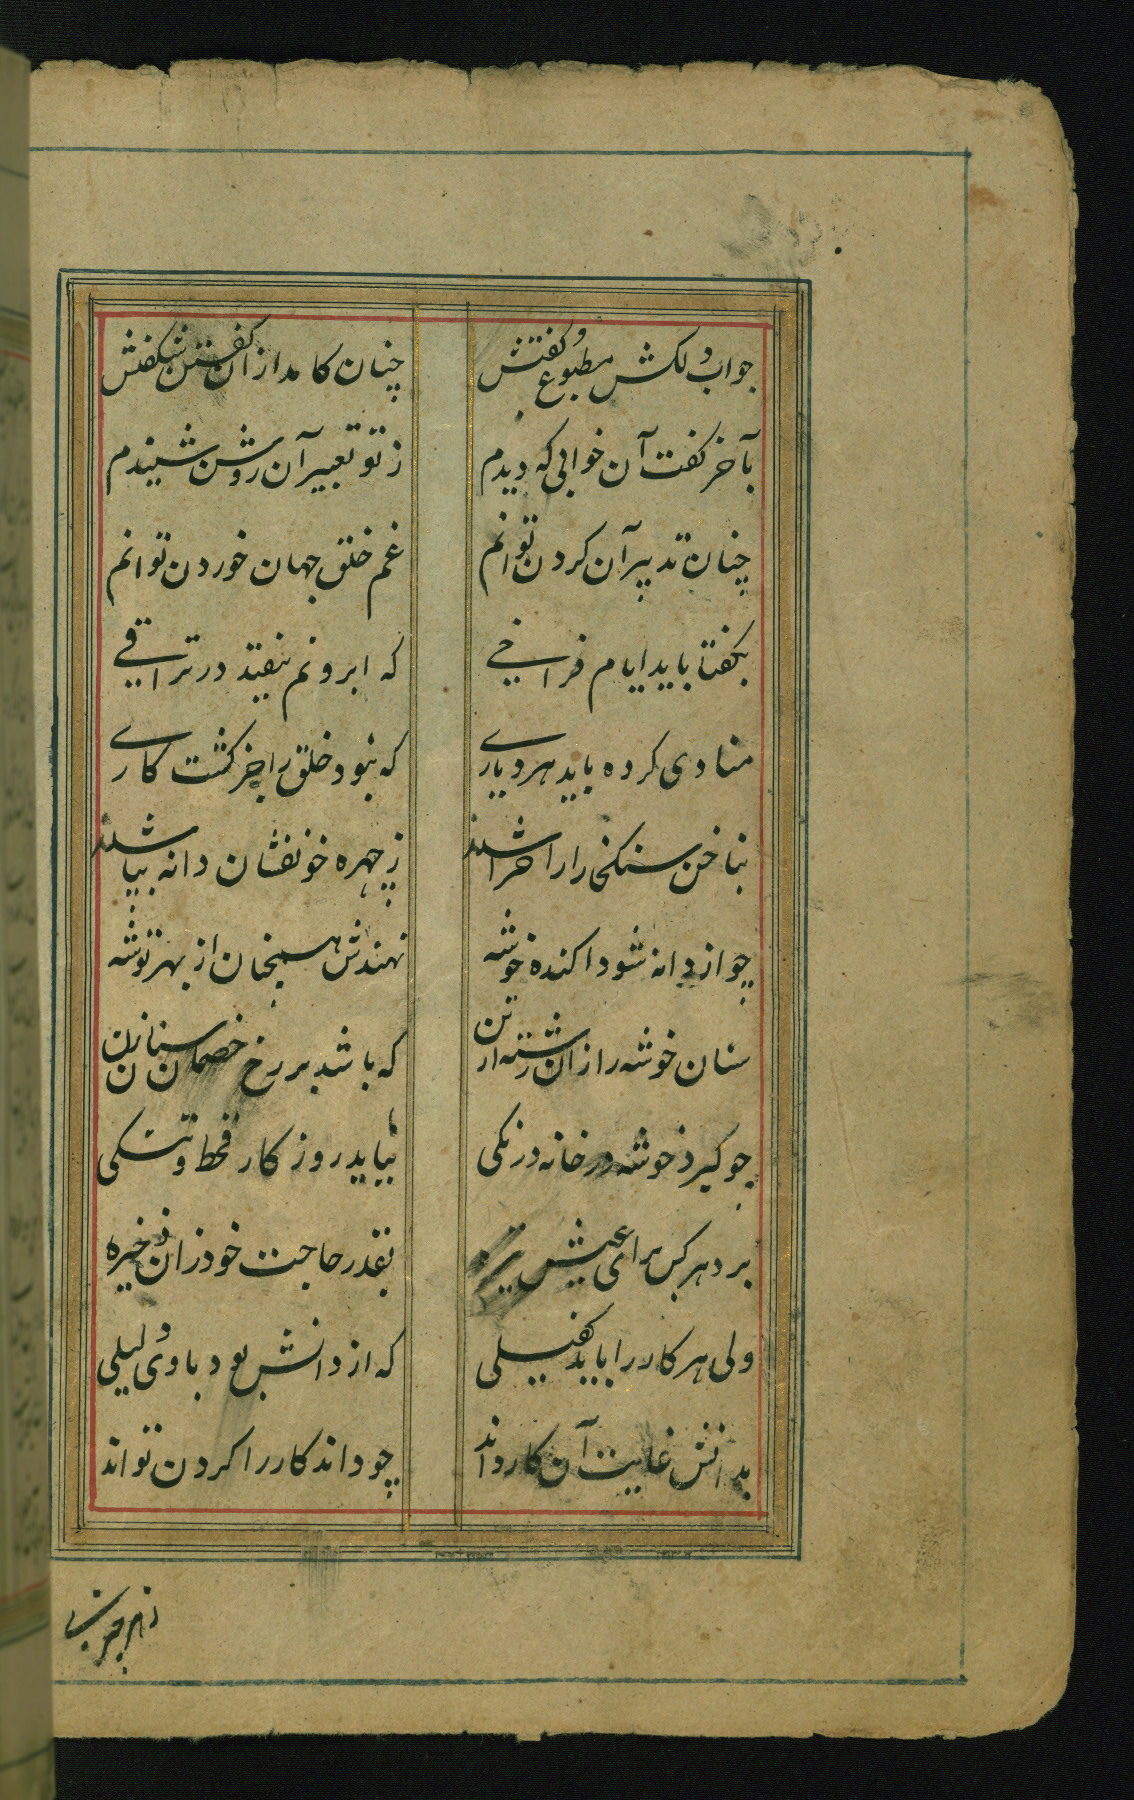 جواب دلکش و مطبوع گفتش چنان کامد ازان گفتن شگفتش
بآخر گفت آن خوابی که دیدم ز تو تعبیر آن روشن شنیدم
چنان تدبیر آن کردن توانم غم خلق جهان خوردن توانم
بگفتا باید ایام فراخی که ابر و نم نیفتد در تراقی
منادی کرده باید هر دیاری که نبود خلق را جز کشت کاری
بناخن سنگ خارا را خراشند ز چهره خونفشان دانه بپاشند
چو از دانه شود آکنده خوشه نهندش همچنان از بهر توشه
سنان خوشه را زان رشته از تن که باشد بر رخ خصمان سنان زن
چو گیرد خوشه در خانه درنگی بیاید روزگار قحط و تنگی
برد هر کس برای عیش تیره بقدر حاجت خود زان ذخیره
ولی هر کار را باید کفیلی که از دانش بود با وی دلیلی
بدانش غایت آن کار داند چو داند کار را کردن تواند